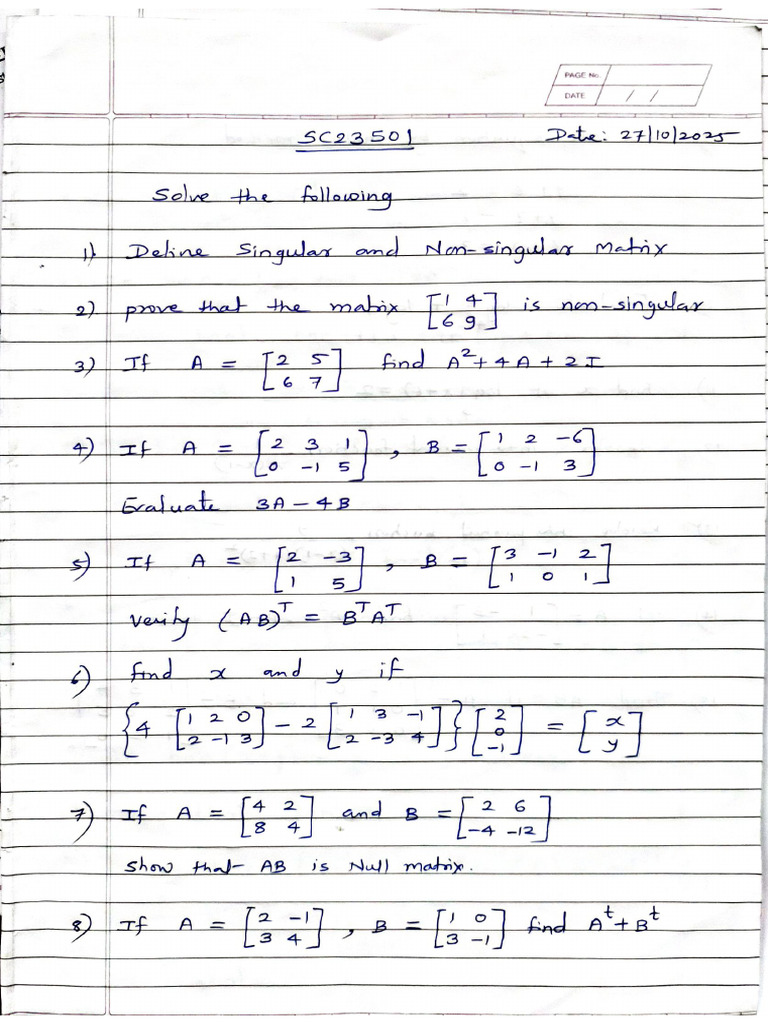 PAGE No.
DATE / /
SC23501 Date: 27/10/2025
Solve the following
1) Define Singular and Non-singular Matrix
2) prove that the matrix [1 4; 6 9] is non-singular
3) If A = [2 5; 6 7] find A² + 4A + 2I
4) If A = [2 3 1; 0 -1 5] , B = [1 2 -6; 0 -1 3]
Evaluate 3A - 4B
5) If A = [2 -3; 1 5] , B = [3 -1 2; 1 0 1]
Verify (AB)ᵀ = BᵀAᵀ
6) find x and y if
{4 [1 2 0; 2 -1 3] - 2 [1 3 -1; 2 -3 4]} [2; 0; -1] = [x; y]
7) If A = [4 2; 8 4] and B = [2 6; -4 -12]
Show that AB is Null matrix.
8) If A = [2 -1; 3 4] , B = [1 0; 3 -1] find Aᵗ + Bᵗ